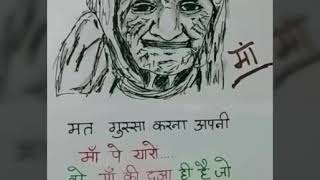 माँ
मत गुस्सा करना अपनी
माँ पे यारो....
वो माँ की दुआ ही है जो